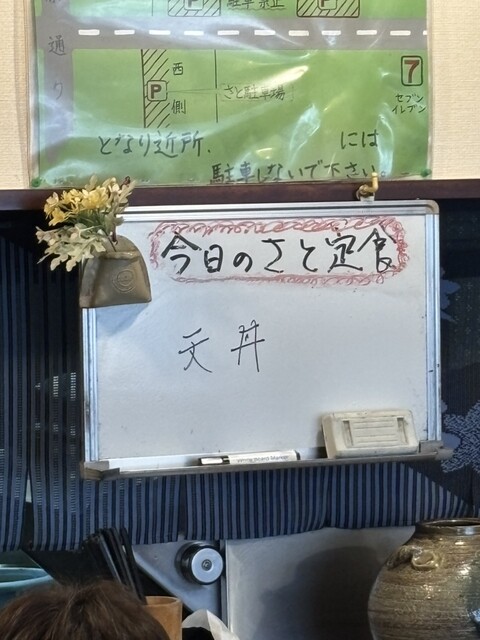 通り
P
駐車禁止
P
西側
P
さと駐車場
7
セブン
イレブン
となり近所.
には
駐車しないで下さい。
今日のさと定食
天丼